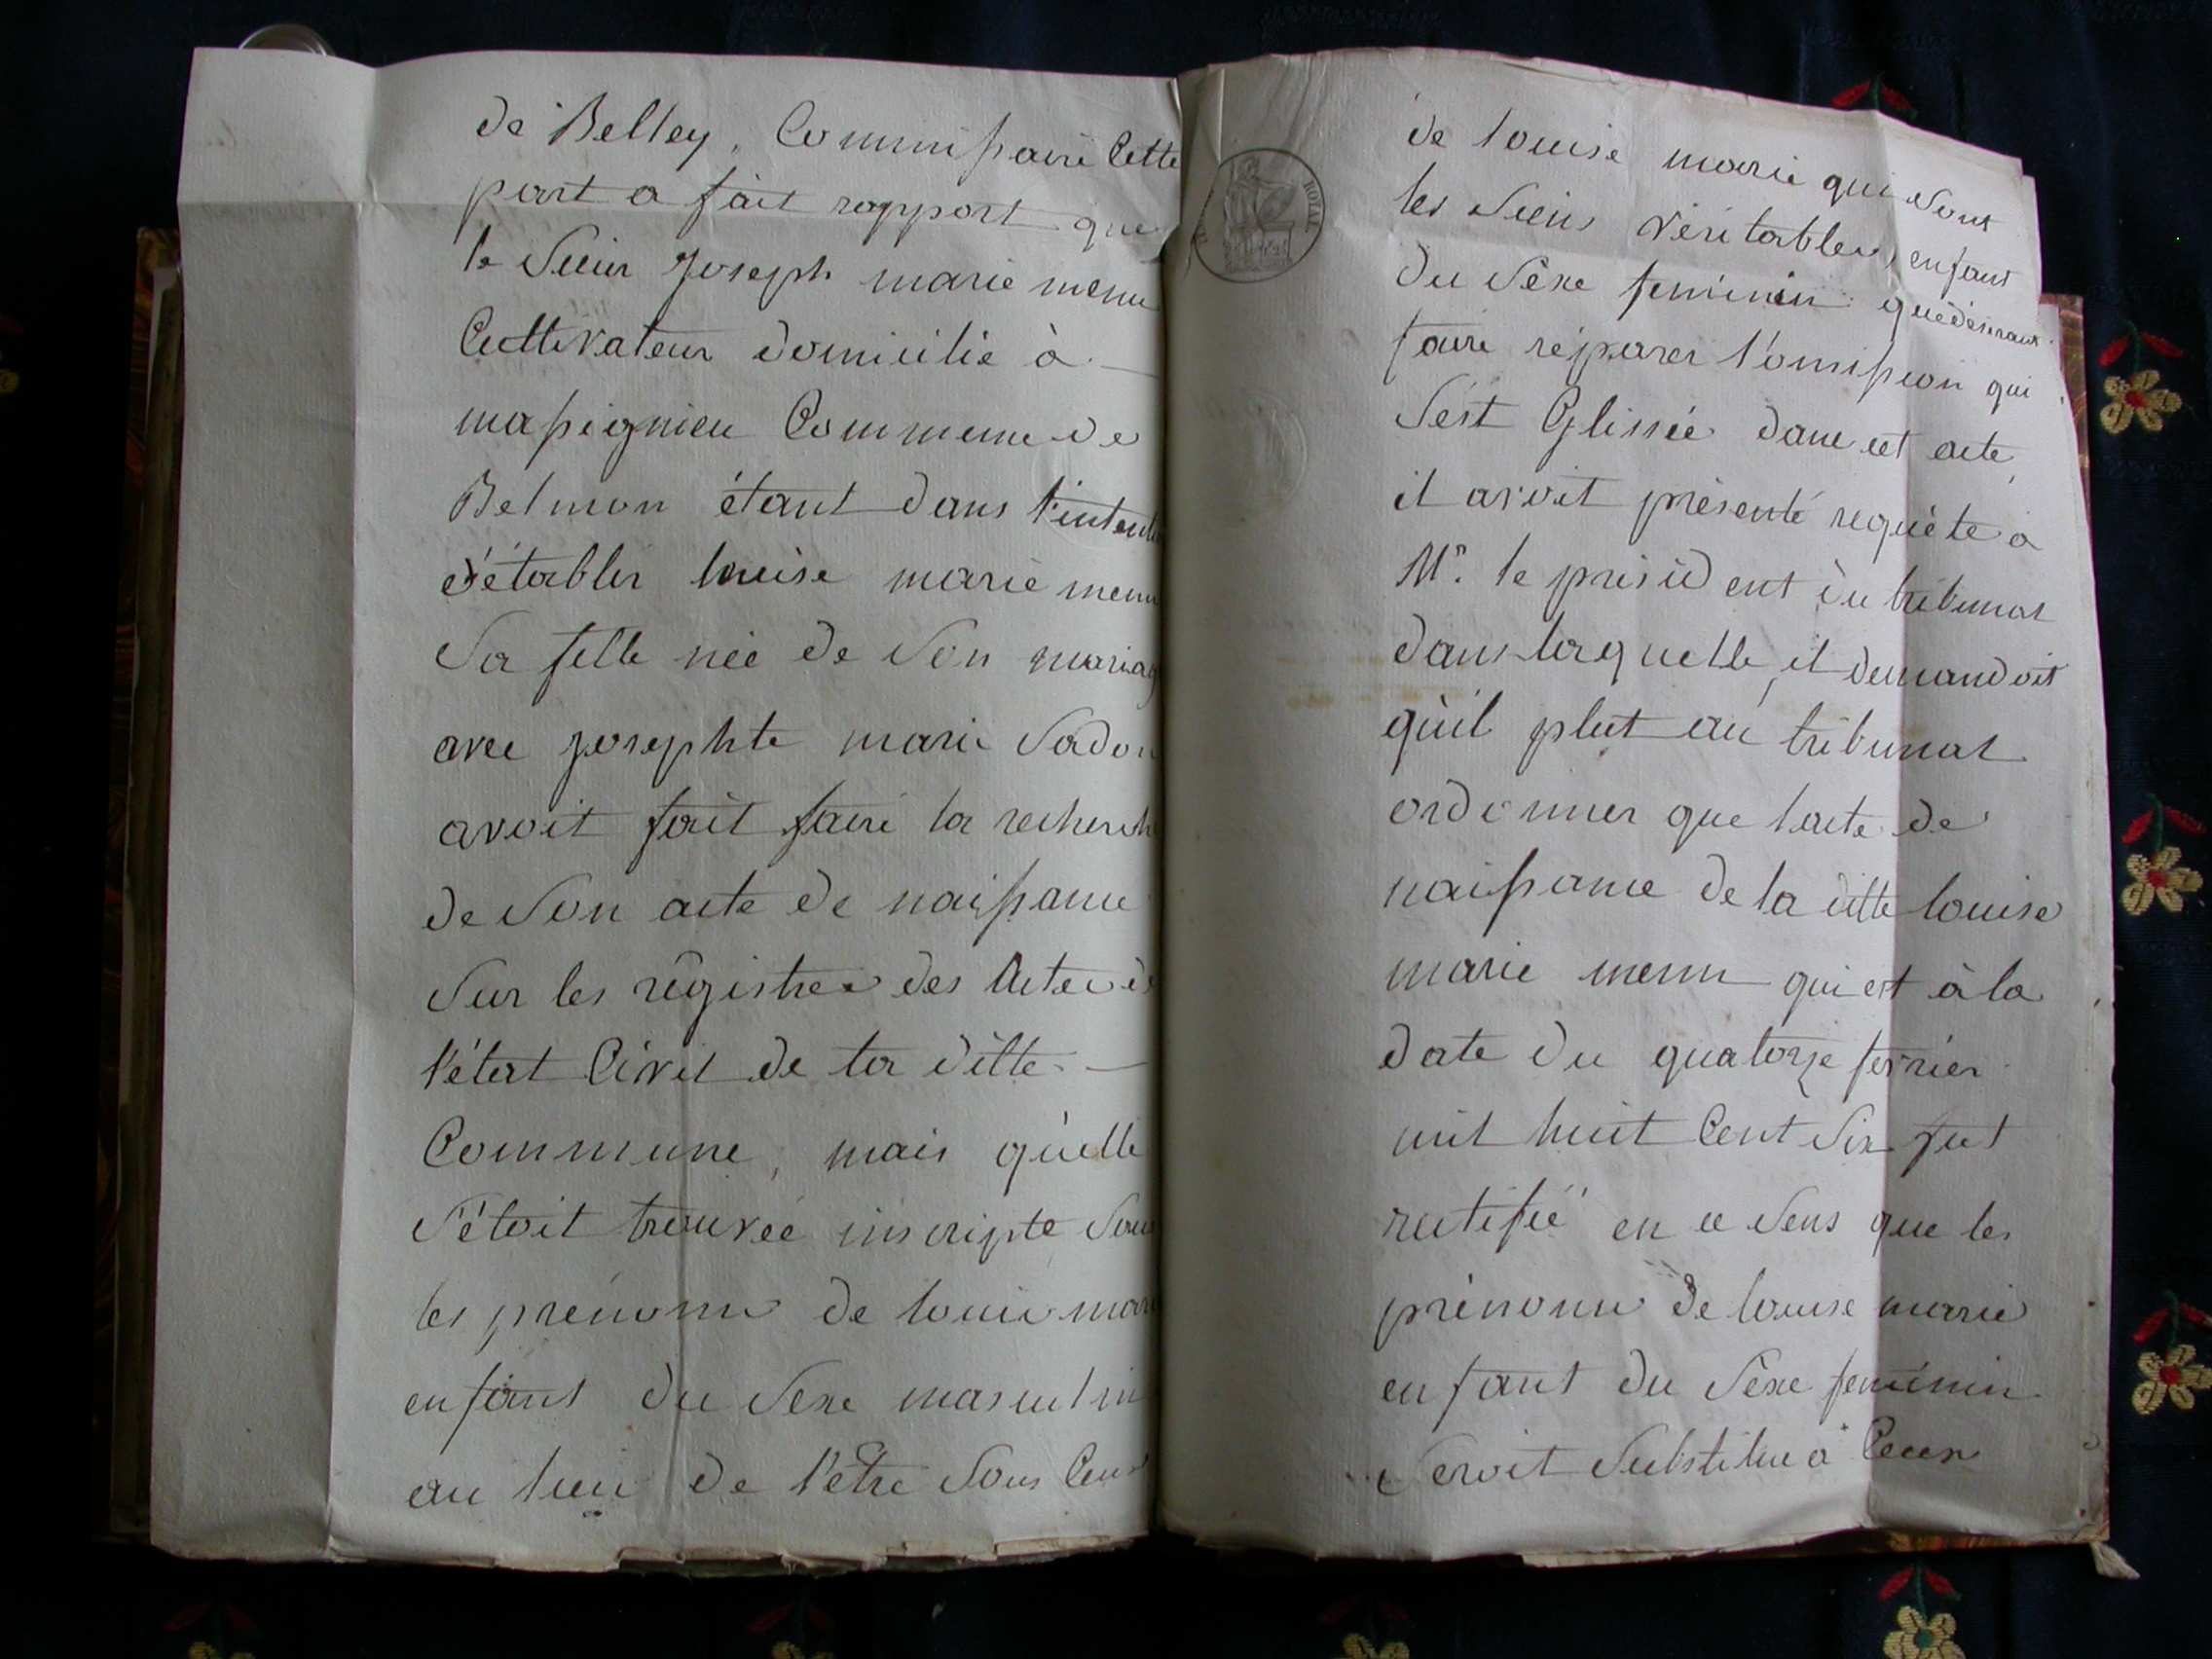 de Belley, Commissaire Cette
part a fait rapport que
le Sieur Joseph marie menu
Cultivateur domicilié à
massignieu Commune de
Belmon étant dans l'intenti
d'établir louise marie menu
Sa fille née de Son mariag
avec josephte marie Sadon
avoit fait faire la recherch
de Son acte de naissance
Sur les régistres des Actes de
l'état Civil de la ditte
Commune, mais qu'elle
S'étoit trouvée inscripte Sous
les prénoms de louis mari
enfant du Sexe masculin
au lieu de l'être Sous Ceux
de louise marie qui Sont
les Siens véritables, enfant
du Sèxe feminin que désirant
faire réparer l'omission qui
S'est Glissée dans cet acte,
il avoit présenté requête à
Mr. le président du tribunal
dans laquelle il demandoit
qu'il plut au tribunal
ordonner que l'acte de
naissance de la ditte louise
marie menu qui est à la
date du quatorze fevrier
mil huit Cent Six fut
rectifié en ce Sens que les
prénoms de louise marie
enfant du Sèxe feminin
Seroit Substitué à Ceux
ROYAL